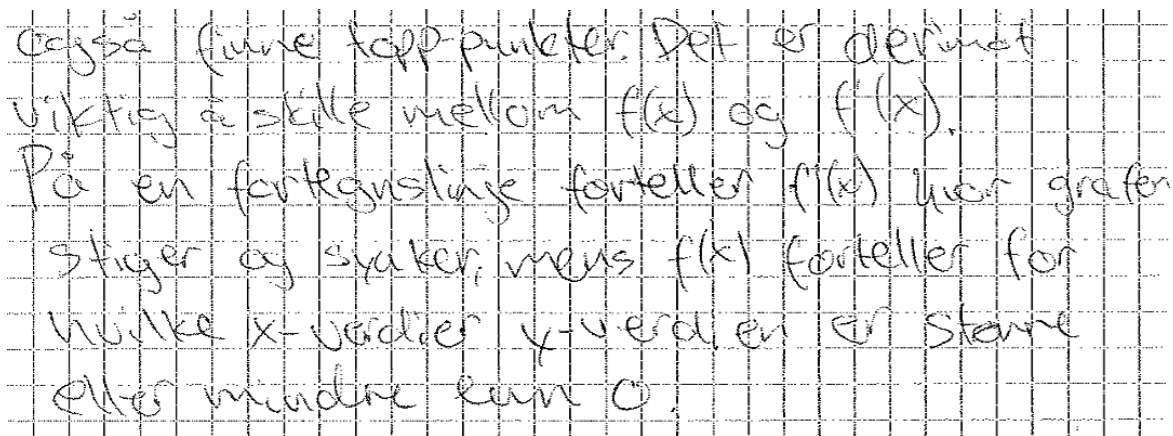 også finne topp-punkter. Det er derimot
viktig å skille mellom f(x) og f'(x).
På en fortegnslinje forteller f'(x) når grafen
stiger og synker, mens f(x) forteller for
hvilke x-verdier y-verdien er større
eller mindre enn 0.